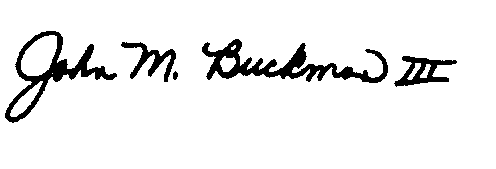 John M. Buckman III